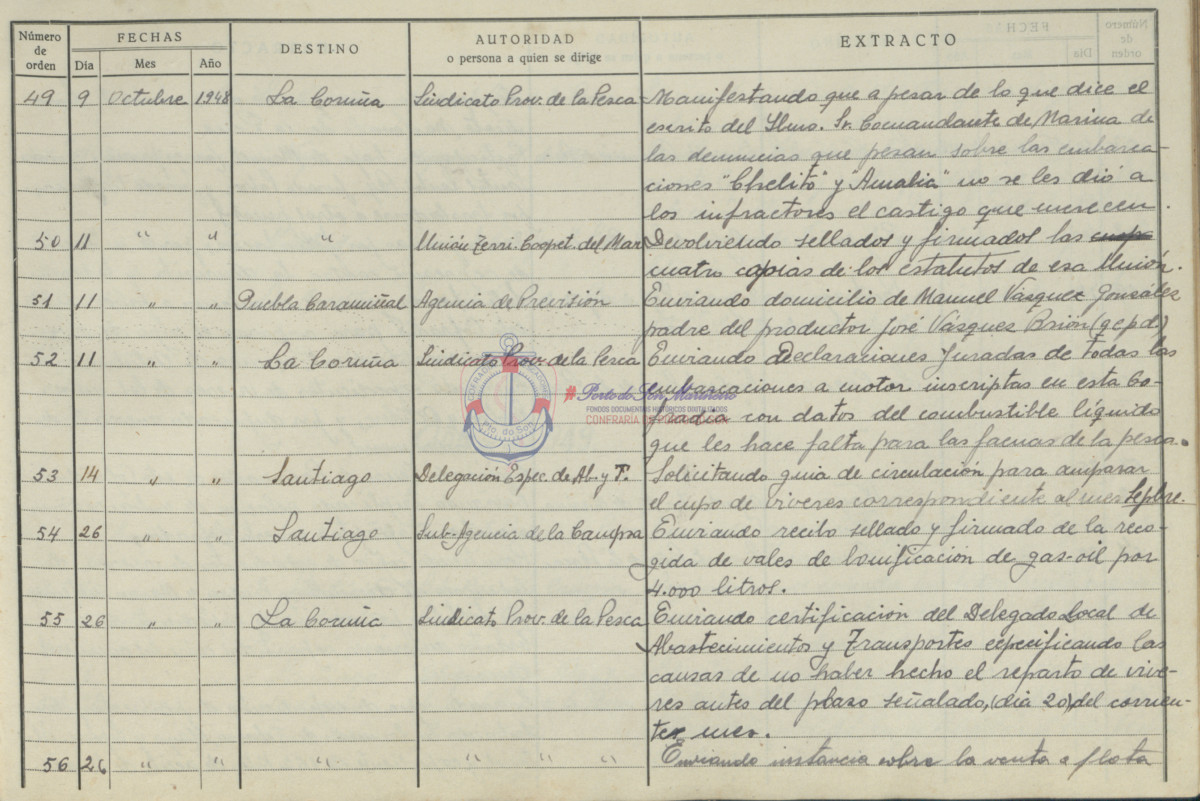 Número de orden FECHAS DESTINO AUTORIDAD EXTRACTO
Dia Mes Año o persona a quien se dirige
49 9 Octubre 1948 La Coruña Sindicato Prov. de la Pesca Manifestando que a pesar de lo que dice el
escrito del Ilmo. Sr. Comandante de Marina de
las denuncias que pesan sobre las embarca-
ciones "Chelito" y "Amalia" no se les dió a
los infractores el castigo que merecen.
50 11 " " " Unión Terri. Coopet. del Mar Devolviendo sellados y firmados las
cuatro copias de los estatutos de esa Unión.
51 11 " " Puebla Caramiñal Agencia de Previsión Enviando domicilio de Manuel Vasquez González
padre del productor José Vásquez Brión (q.e.p.d.)
52 11 " " La Coruña Sindicato Prov. de la Pesca Enviando Declaraciones Juradas de todas las
embarcaciones a motor inscriptas en esta Co-
fradia con datos del combustible líquido
que les hace falta para las faenas de la pesca.
53 14 " " Santiago Delegación Espec. de Ab. y T. Solicitando guia de circulación para amparar
el cupo de viveres correspondiente al mes Sepbre.
54 26 " " Santiago Sub-Agencia de la Campsa Enviando recibo sellado y firmado de la reco-
gida de vales de bonificación de gas-oil por
4.000 litros.
55 26 " " La Coruña Sindicato Prov. de la Pesca Enviando certificación del Delegado Local de
Abastecimientos y Transportes especificando las
causas de no haber hecho el reparto de vive-
res antes del plazo señalado, (dia 20) del corrien-
te mes.
56 26 " " " " " " Enviando instancia sobre la venta a flota
Pto. do Son
Porto do Son
FONDOS DOCUMENTAIS HISTÓRICOS DIXITALIZADOS
CONFRARIA DE